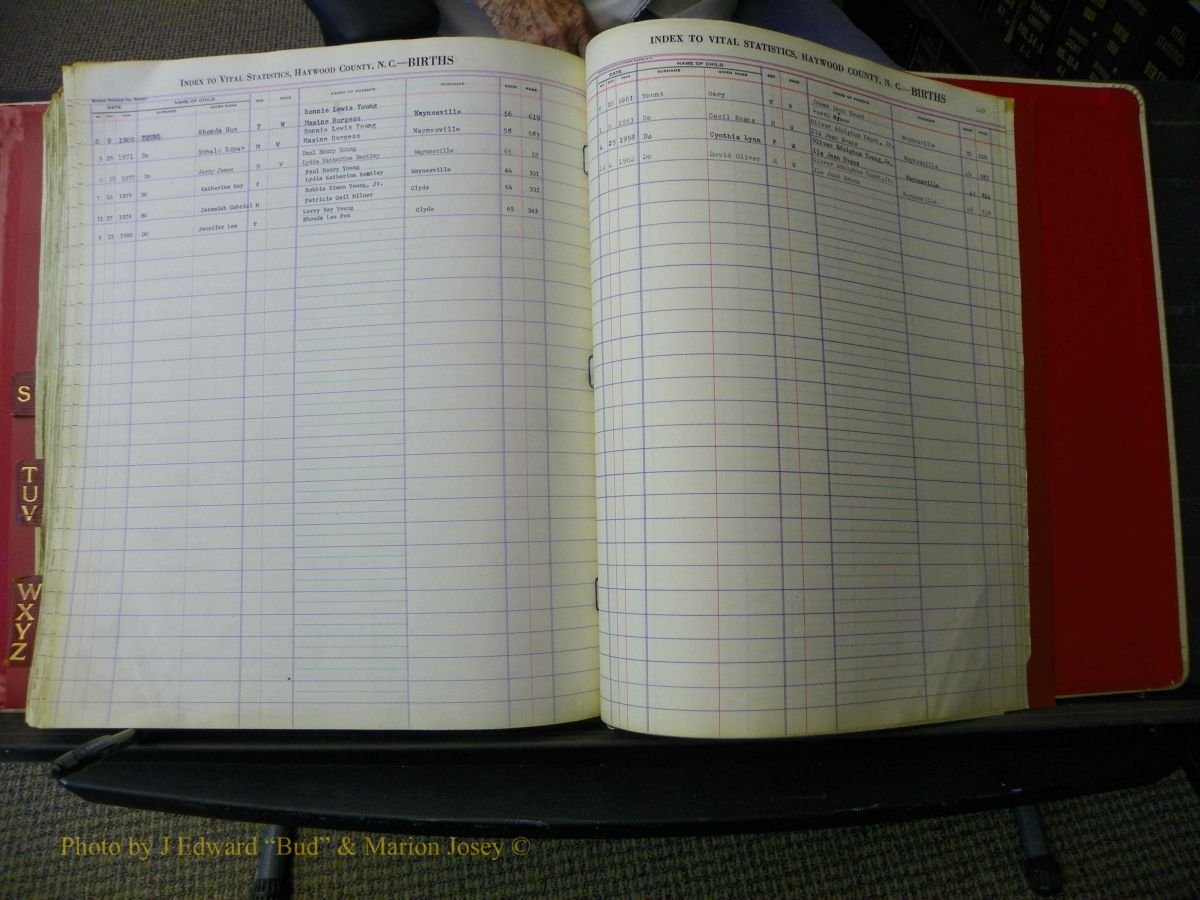 INDEX TO VITAL STATISTICS, HAYWOOD COUNTY, N. C.—BIRTHS
DATE NAME OF CHILD SEX RACE NAMES OF PARENTS TOWNSHIP BOOK PAGE
YEAR SURNAME GIVEN NAME
6 9 1969 YOUNG Rhonda Sue F W Ronnie Lewis Young Waynesville 56 619
Maxine Burgess
3 26 1971 Do Ronald Edgar M W Ronnie Lewis Young Waynesville 58 583
Maxine Burgess
28 1977 Do Jerry James M W Paul Henry Young Waynesville 63
Lydia Katherine Bentley
7 16 1979 Do Katherine Kay F Paul Henry Young Waynesville 64 331
Lydia Katherine Bentley
11 27 1979 Do Jeremiah Gabriel M Robbie Simon Young, Jr. Clyde 64 332
Patricia Gail Milner
8 1980 Do Jennifer Lee F Larry Ray Young Clyde 65 363
Rhonda Lee Fox
S
TUV
WXYZ
INDEX TO VITAL STATISTICS, HAYWOOD COUNTY, N. C.—BIRTHS
DATE NAME OF CHILD SEX RACE NAMES OF PARENTS TOWNSHIP BOOK PAGE
YEAR SURNAME GIVEN NAME
1951 Yount Gary M W James Leon Yount Waynesville
6 1953 Do Cecil Evans M W Oliver Adolphus Yount, Jr. Waynesville
Ila Jean Evans
4 25 1958 Do Cynthia Lynn F W Oliver Adolphus Young, Jr. Waynesville
Ila Jean Evans
12 4 1962 Do David Oliver M W Oliver Adolphus Young, Jr. Waynesville
Ila Jean Evans
Photo by J Edward “Bud” & Marion Josey ©